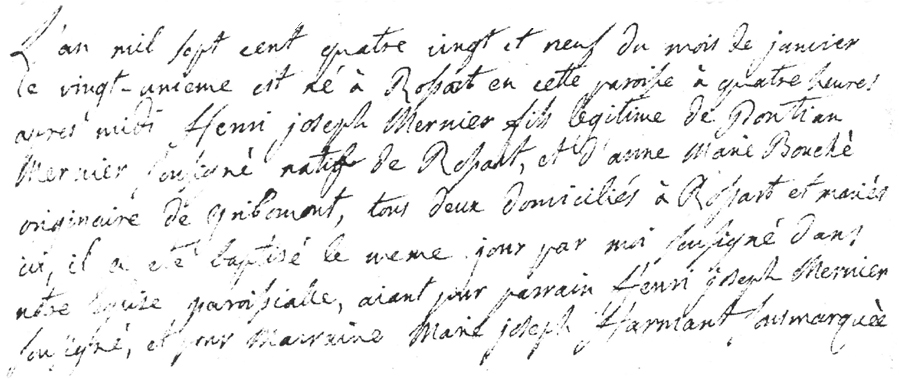 L'an mil sept cent quatre vingt et neuf du mois de janvier
le vingt-unieme est né à Rossart en cette paroisse à quatre heures
apres midi Henri joseph Mernier fils legitime de Pontian
Mernier sousigné natif de Rossart, et d'anne Marie Bouché
originaire de gribomont, tous deux domiciliés à Rossart et mariés
ici, il a eté baptisé le meme jour par moi sousigné dans
notre eglise paroissialle, aiant pour parrain Henri joseph Mernier
sousigné, et pour Marraine Marie joseph Harmant sousmarquèe